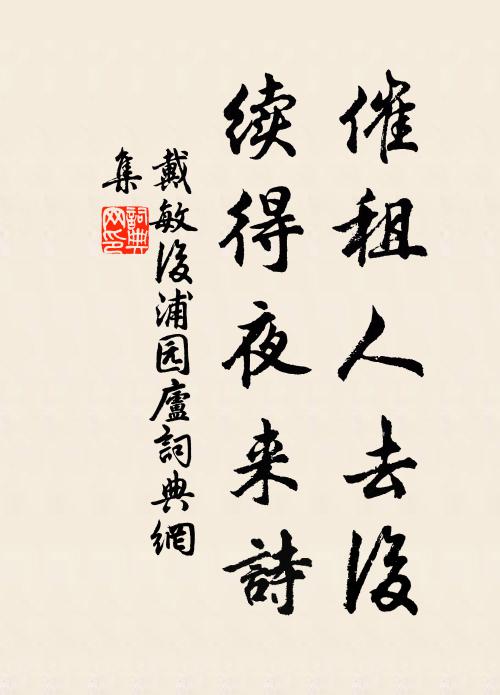 催租人去後
续得夜来詩
戴敏後浦园廬詞典網
集
詞典
网印